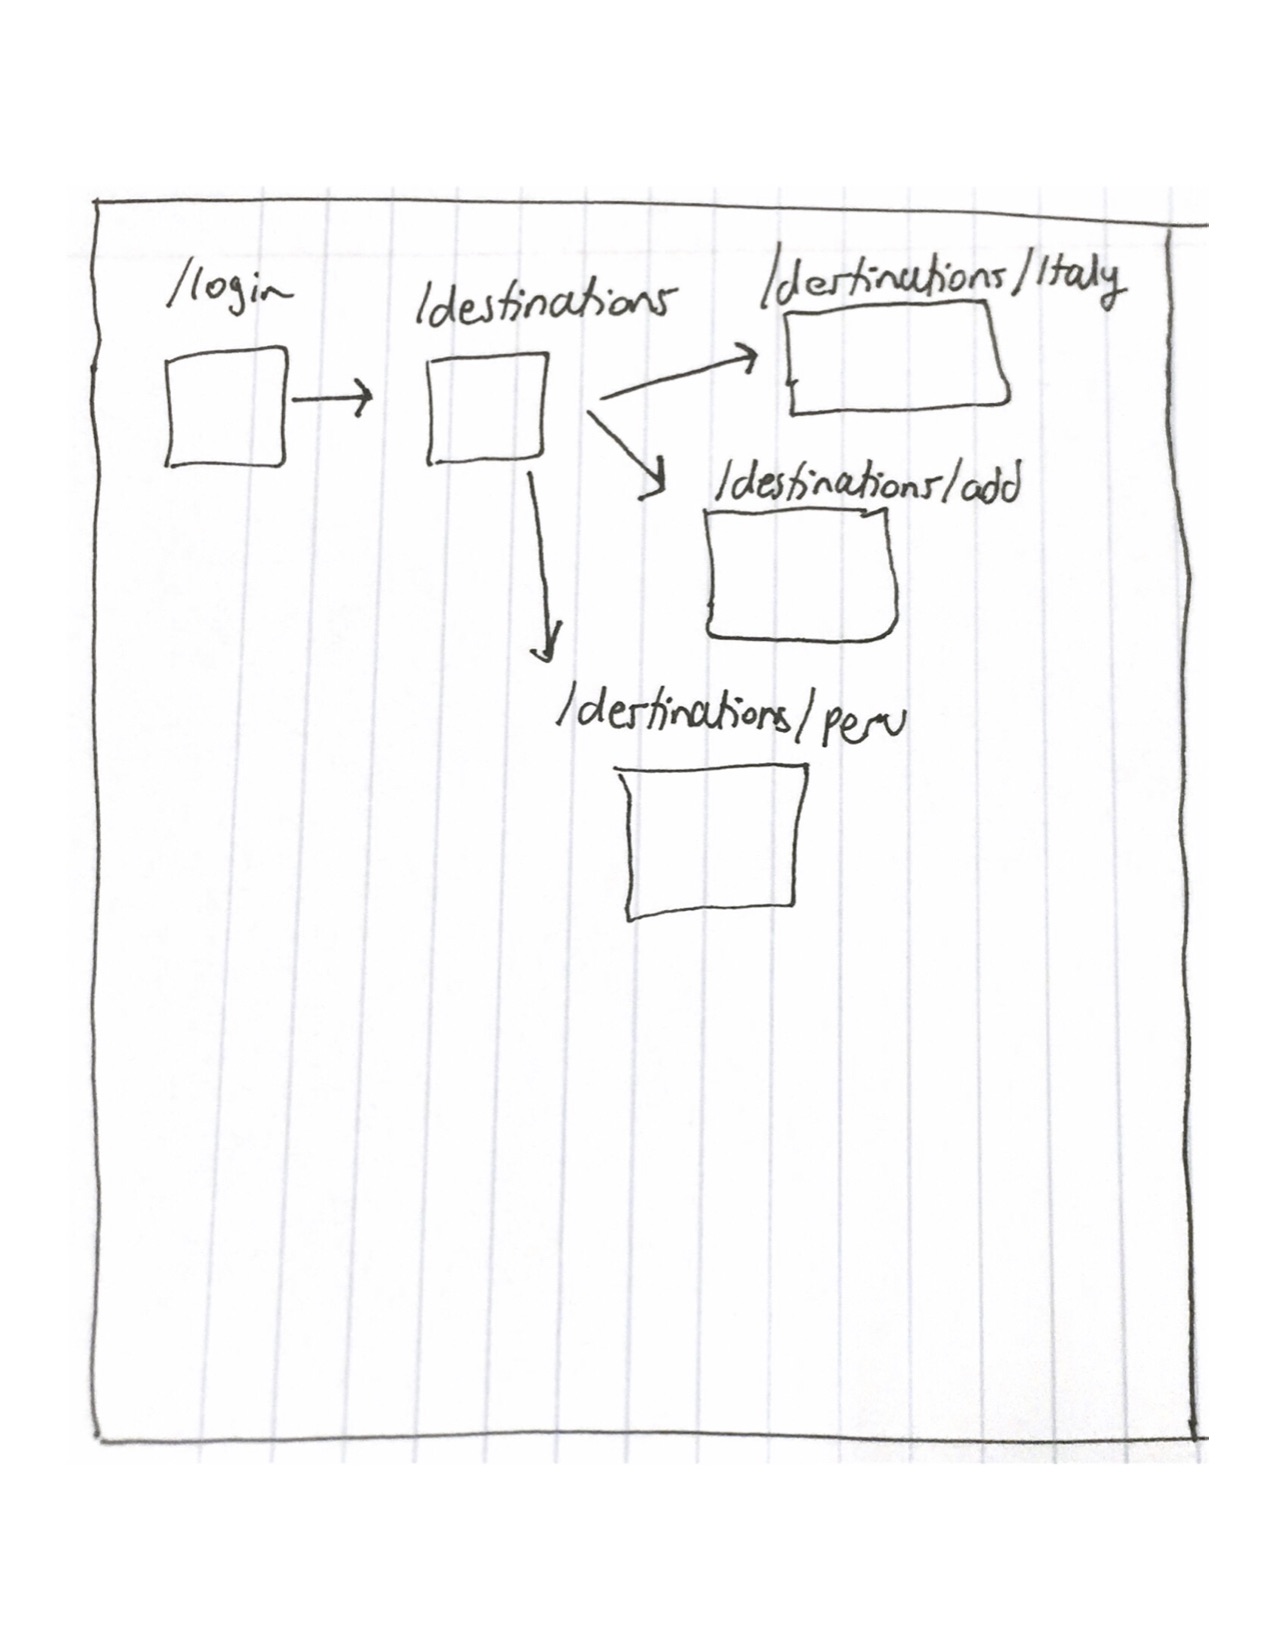 /login
/destinations
/destinations/Italy
/destinations/add
/destinations/peru